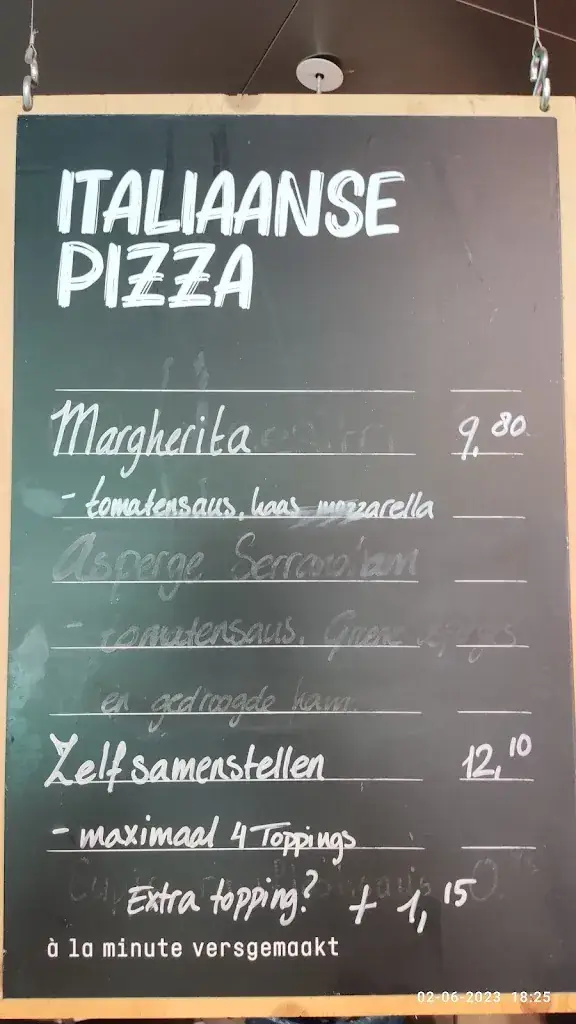 ITALIAANSE
PIZZA
Margherita 9,80
- tomatensaus, kaas mozzarella
Asperge Serranoham
- tomatensaus, Groene asperges
en gedroogde ham.
Zelf samenstellen 12,10
- maximaal 4 Toppings
Extra topping? + 1,15
à la minute versgemaakt
02-06-2023 18:25